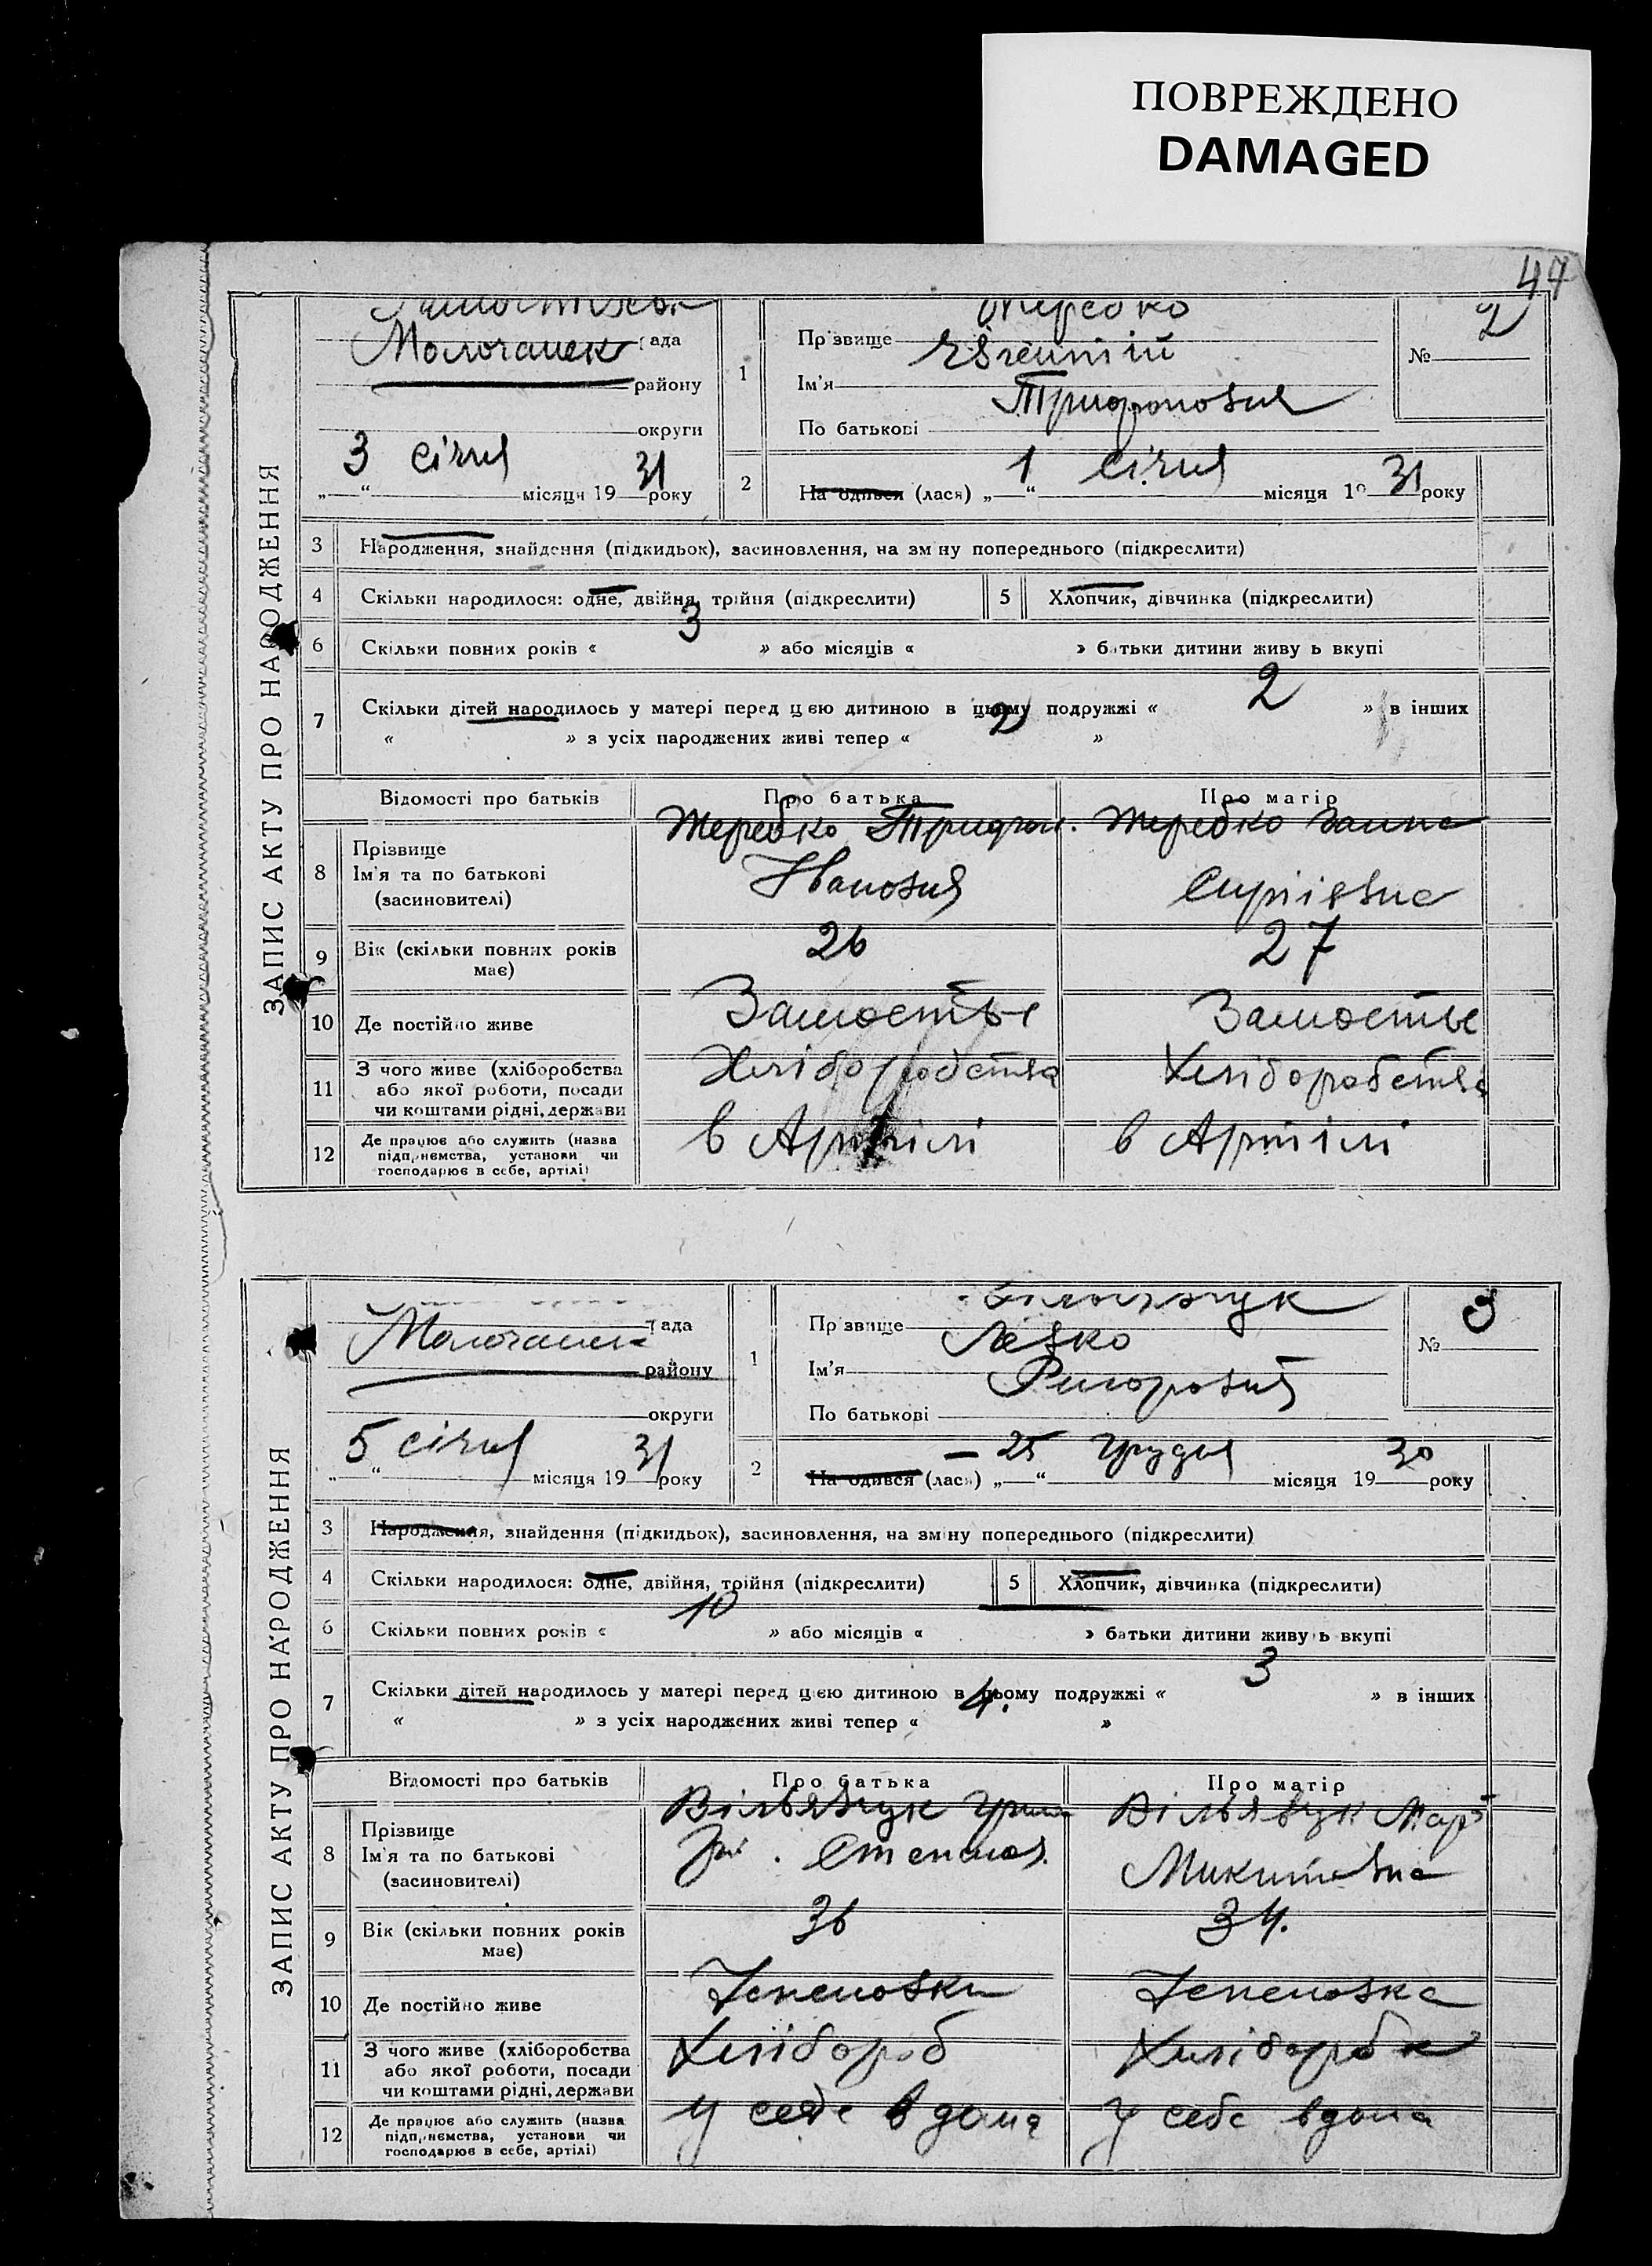 ПОВРЕЖДЕНО
DAMAGED
47
ЗАПИС АКТУ ПРО НАРОДЖЕННЯ
Молочанськ рада
району
округи
3 січня 31
„ “ місяця 19 року
1
Прізвище Жеребко
Ім'я Євгеній
По батькові Трифонович
№ 2
2
На одився (лася) „ 1 “ січня місяця 19 31 року
3 Народження, знайдення (підкидьок), засиновлення, на зміну попереднього (підкреслити)
4 Скільки народилося: одне, двійня, трійня (підкреслити)
5 Хлопчик, дівчинка (підкреслити)
6 Скільки повних років « 3 » або місяців « » батьки дитини живу ь вкупі
7 Скільки дітей народилось у матері перед цією дитиною в цьому подружжі « 2 » в інших
« » з усіх народжених живі тепер « 2 »
Відомості про батьків Про батька Про матір
8 Прізвище
Ім'я та по батькові
(засиновителі)
Жеребко
Іванович
Жеребко
9 Вік (скільки повних років
має)
26 27
10 Де постійно живе Замостье Замостье
11 З чого живе (хліборобства
або якої роботи, посади
чи коштами рідні, держави
Хліборобства Хліборобства
12 Де працює або служить (назва
підприємства, установи чи
господарює в себе, артілі)
в Артілі в Артілі
ЗАПИС АКТУ ПРО НАРОДЖЕННЯ
Молочанськ рада
району
округи
5 січня 31
„ “ місяця 19 року
1
Прізвище
Ім'я Левко
По батькові
№ 3
2
На одився (лася) „ 25 “ грудня місяця 19 30 року
3 Народження, знайдення (підкидьок), засиновлення, на зміну попереднього (підкреслити)
4 Скільки народилося: одне, двійня, трійня (підкреслити)
5 Хлопчик, дівчинка (підкреслити)
6 Скільки повних років « 10 » або місяців « » батьки дитини живу ь вкупі
7 Скільки дітей народилось у матері перед цією дитиною в цьому подружжі « 3 » в інших
« » з усіх народжених живі тепер « 4. »
Відомості про батьків Про батька Про матір
8 Прізвище
Ім'я та по батькові
(засиновителі)
Микитівна
9 Вік (скільки повних років
має)
36 34.
10 Де постійно живе
11 З чого живе (хліборобства
або якої роботи, посади
чи коштами рідні, держави
Хлібороб Хліборобка
12 Де працює або служить (назва
підприємства, установи чи
господарює в себе, артілі)
у себе вдома у себе вдома